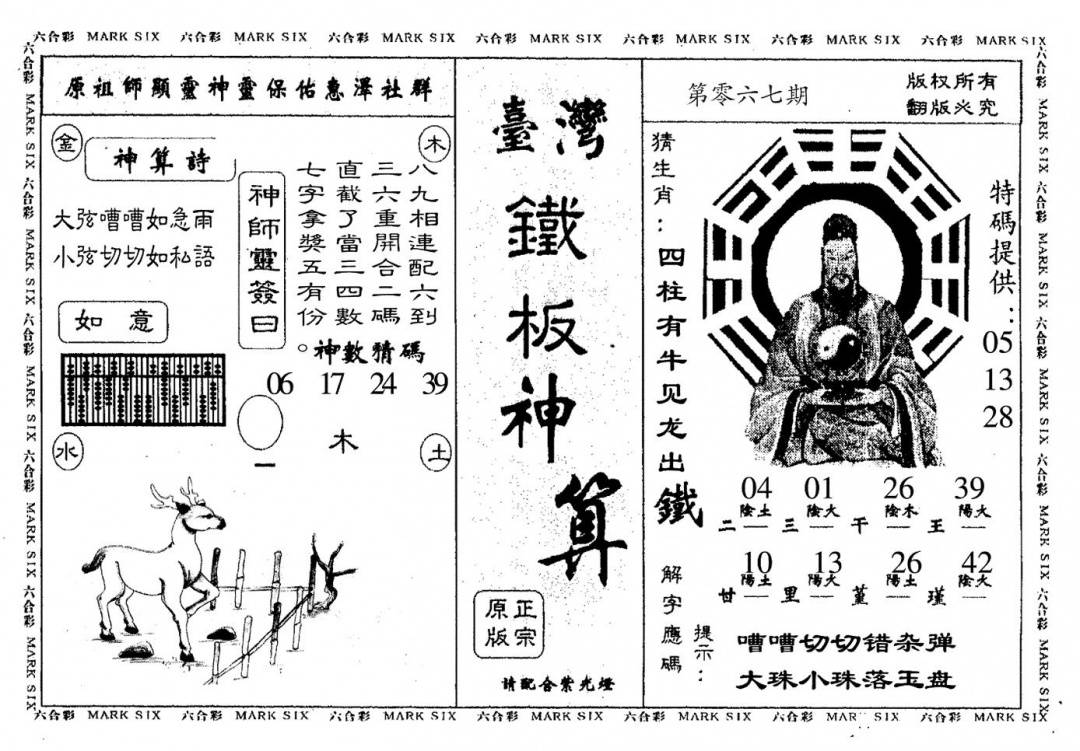 六合彩 MARK SIX 六合彩 MARK SIX 六合彩 MARK SIX 六合彩 MARK SIX 六合彩 MARK SIX 六合彩 MARK SIX 六合彩 MARK SIX
六合彩 MARK SIX 六合彩 MARK SIX 六合彩 MARK SIX 六合彩 MARK SIX 六合彩 MARK SIX
原祖師顯靈神靈保佑惠澤社群
金
木
神算詩
大弦嘈嘈如急雨
小弦切切如私語
如意
神師靈簽曰
八九相連配六到
三六重開合二碼
直截了當三四數
七字拿獎五有份。
神數猜碼
06 17 24 39
木
一
水
土
臺灣
鐵板神算
正宗
原版
請配合紫光燈
第零六七期
版权所有
翻版必究
猜生肖：四柱有牛见龙出鐵
特碼提供：
05
13
28
04 01 26 39
陰土 陰火 陰木 陽火
二 — 三 — 干 — 王 —
10 13 26 42
陽土 陽火 陽土 陰火
甘 — 里 — 堇 — 瑾 —
解字應碼
提示：
嘈嘈切切错杂弹
大珠小珠落玉盘
六合彩 MARK SIX 六合彩 MARK SIX 六合彩 MARK SIX 六合彩 MARK SIX 六合彩 MARK SIX
六合彩 MARK SIX 六合彩 MARK SIX 六合彩 MARK SIX 六合彩 MARK SIX 六合彩 MARK SIX 六合彩 MARK SIX 六合彩 MARK SIX